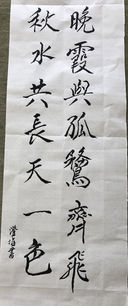 晚霞與孤鶩齊飛
秋水共長天一色